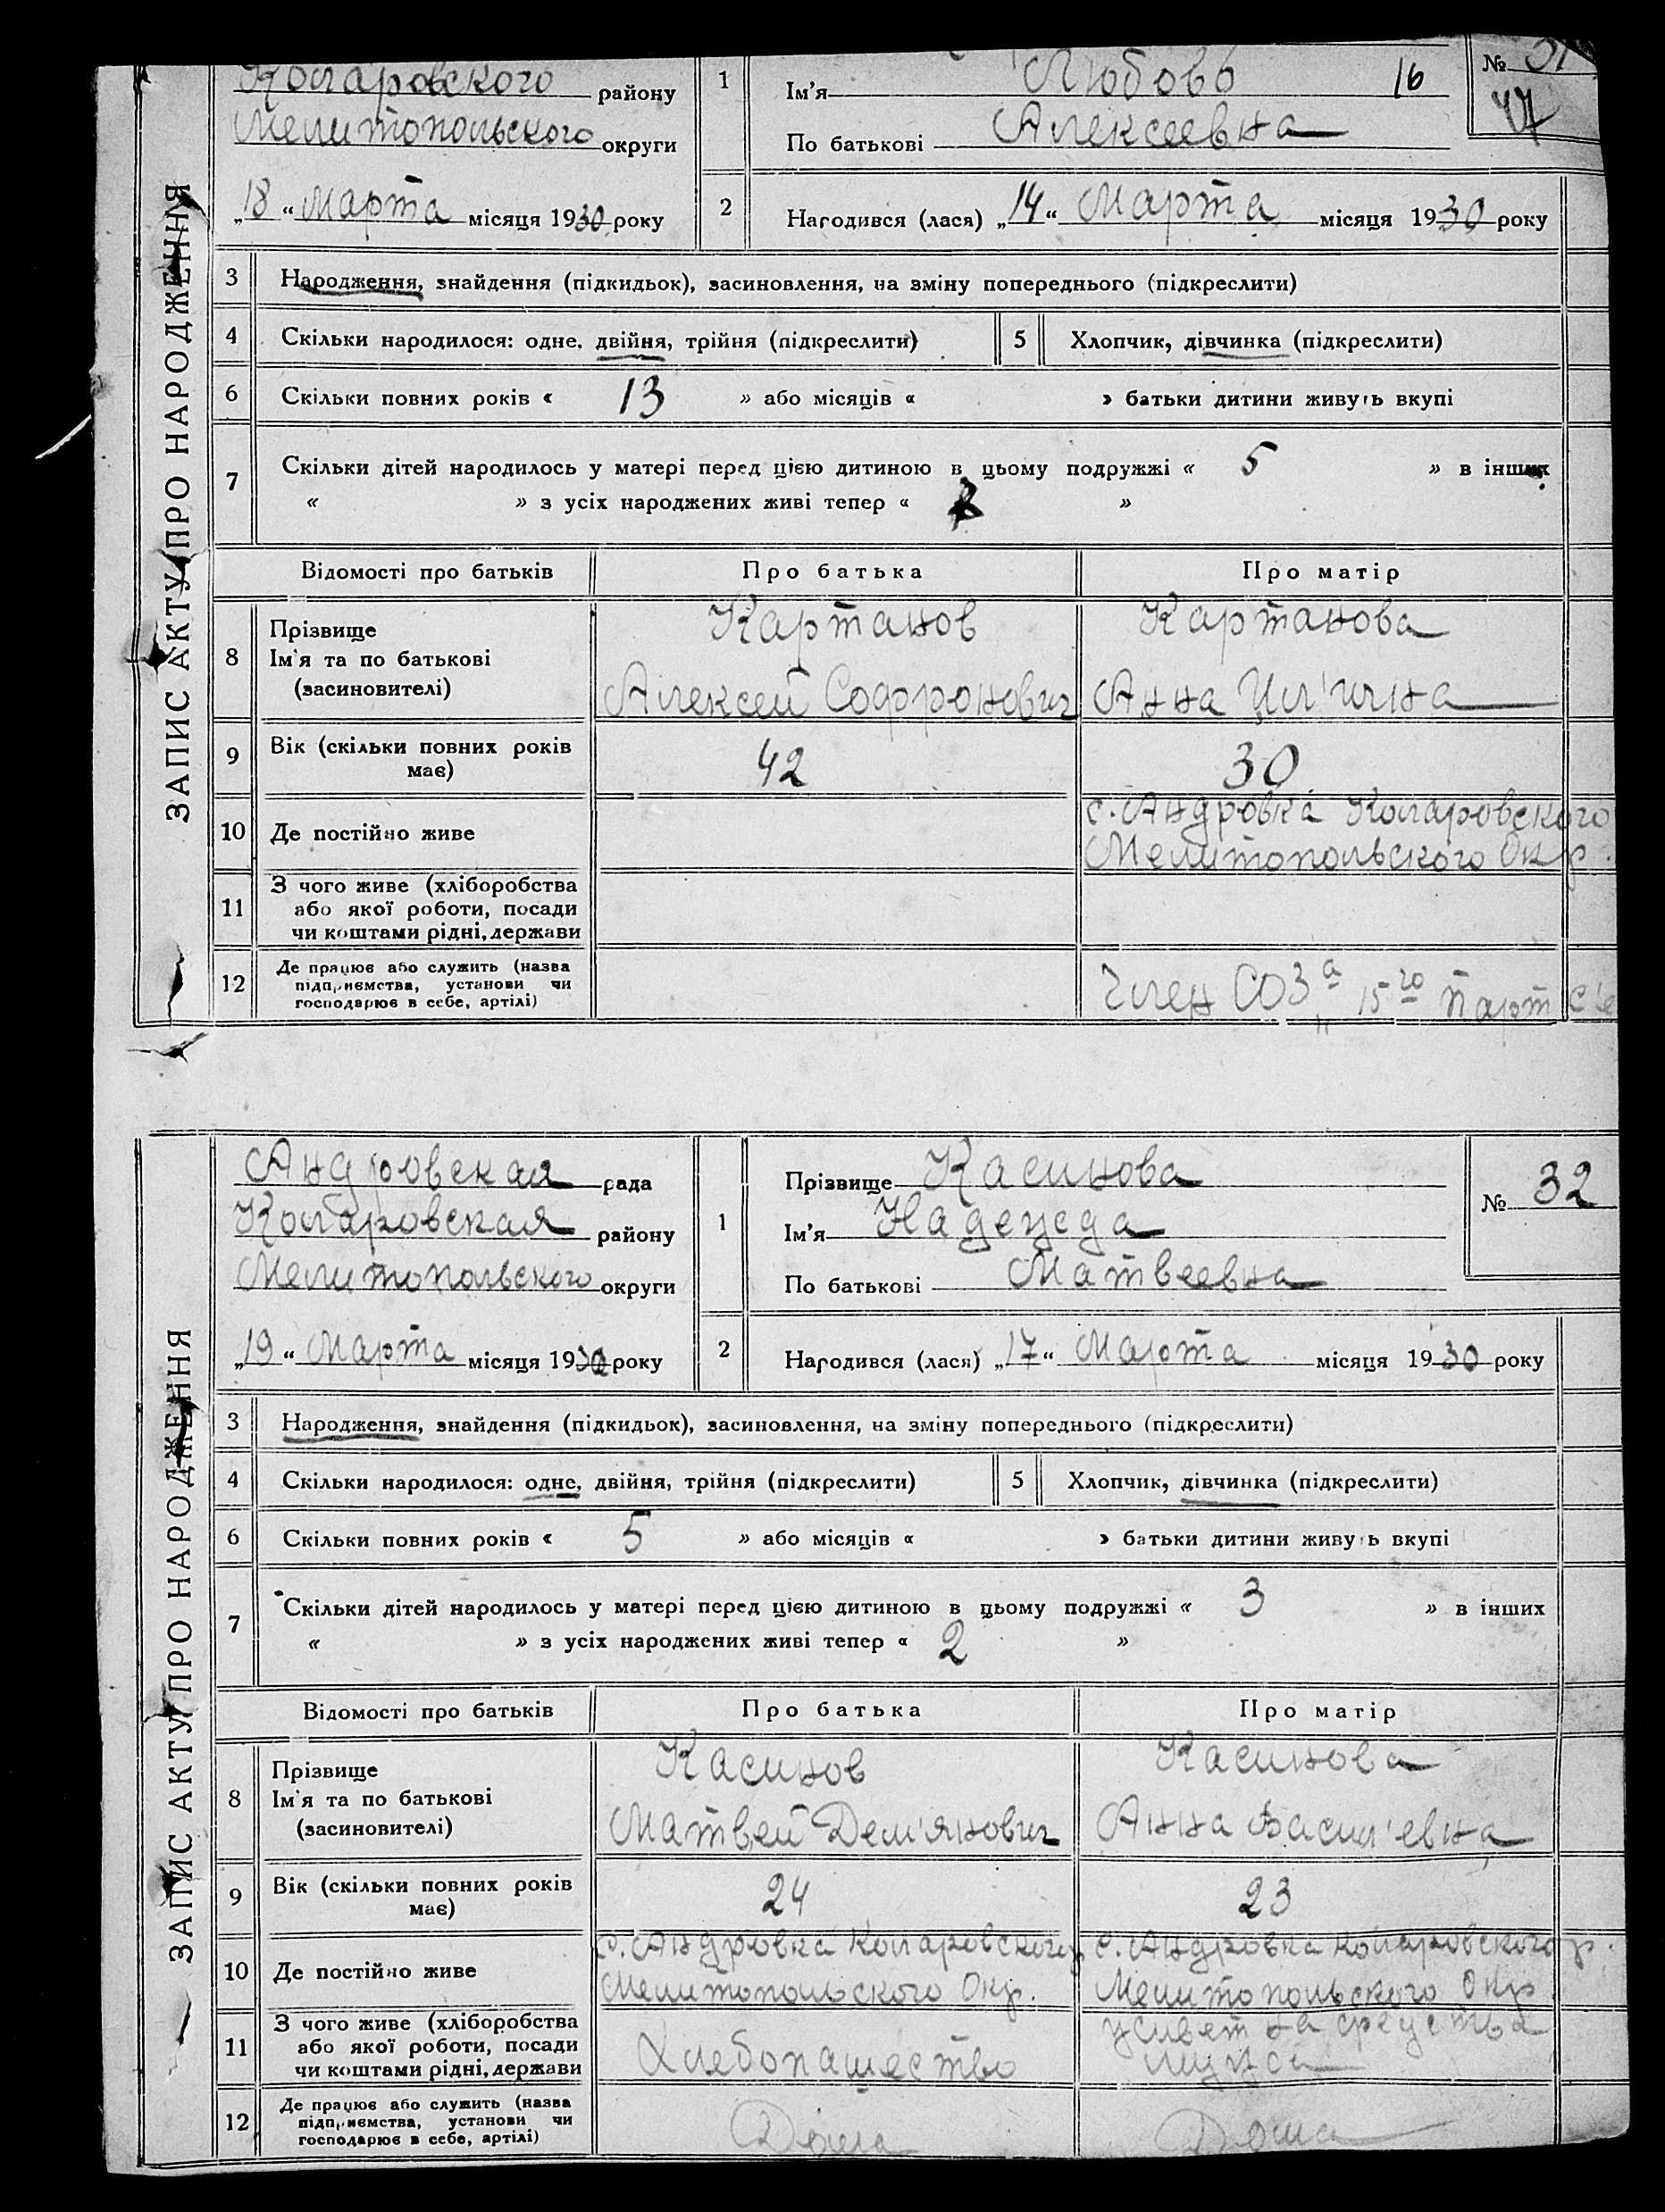 ЗАПИС АКТУ ПРО НАРОДЖЕННЯ
Коларовского району
Мелитопольского округи
„18“ Марта місяця 1930 року
1
Ім'я Любовь 16
По батькові Алексеевна
№ 31
47
2 Народився (лася) „14“ Марта місяця 1930 року
3 Народження, знайдення (підкидьок), засиновлення, на зміну попереднього (підкреслити)
4 Скільки народилося: одне, двійня, трійня (підкреслити) 5 Хлопчик, дівчинка (підкреслити)
6 Скільки повних років « 13 » або місяців « » батьки дитини живуть вкупі
7 Скільки дітей народилось у матері перед цією дитиною в цьому подружжі « 5 » в інших
« » з усіх народжених живі тепер « »
Відомості про батьків Про батька Про матір
8 Прізвище Картанов Картанова
Ім'я та по батькові
(засиновителі) Алексей Софронович Анна Ил'ична
9 Вік (скільки повних років має) 42 30
10 Де постійно живе с. Андровка Коларовского
Мелитопольского Окр.
11 З чого живе (хліборобства
або якої роботи, посади
чи коштами рідні, держави
12 Де працює або служить (назва
підприємства, установи чи
господарює в себе, артілі) Член СОЗа 15го Парт С'е
ЗАПИС АКТУ ПРО НАРОДЖЕННЯ
Андровская рада
Коларовская району
Мелитопольского округи
„19“ Марта місяця 1930 року
1 Прізвище Касинова
Ім'я Надежда
По батькові Матвеевна
№ 32
2 Народився (лася) „17“ Марта місяця 1930 року
3 Народження, знайдення (підкидьок), засиновлення, на зміну попереднього (підкреслити)
4 Скільки народилося: одне, двійня, трійня (підкреслити) 5 Хлопчик, дівчинка (підкреслити)
6 Скільки повних років « 5 » або місяців « » батьки дитини живуть вкупі
7 Скільки дітей народилось у матері перед цією дитиною в цьому подружжі « 3 » в інших
« » з усіх народжених живі тепер « 2 »
Відомості про батьків Про батька Про матір
8 Прізвище Касинов Касинова
Ім'я та по батькові
(засиновителі) Матвей Дем'янович Анна Васил'евна
9 Вік (скільки повних років має) 24 23
10 Де постійно живе с. Андровка Коларовского р. с. Андровка Коларовского р.
Мелитопольского Окр. Мелитопольского Окр.
11 З чого живе (хліборобства
або якої роботи, посади
чи коштами рідні, держави Хлебопашество живет на средства
мужа
12 Де працює або служить (назва
підприємства, установи чи
господарює в себе, артілі) Дома Дома